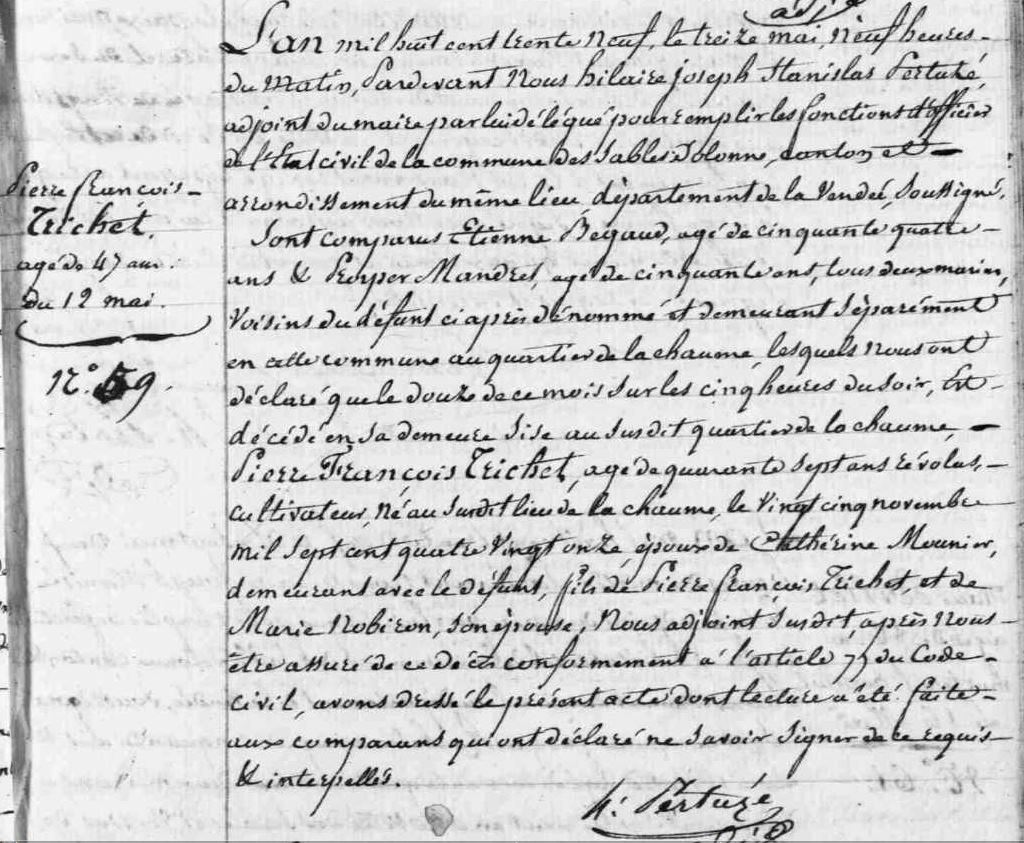 adj.t
L'an mil huit cent trente neuf, le treize mai, neuf heures-
du matin, Pardevant nous hilaire joseph Stanislas Pertuzé
adjoint du maire par lui délégué pour remplir les fonctions d'officier
de l'Etat civil de la commune des Sables d'olonne, canton et —
arrondissement du même lieu, département de la Vendée, Soussigné,
Sont comparus Etienne Begaud, agé de cinquante quatre -
ans & Prosper Mandret, agé de cinquante ans, tous deux marins,
Voisins du défunt ci après dénommé et demeurant séparément
en cette commune au quartier de la chaume, lesquels nous ont
déclaré que le douze de ce mois sur les cinq heures du soir, Est -
décédé en sa demeure sise au susdit quartier de la chaume, —
Pierre François Trichet, agé de quarante sept ans révolus, -
cultivateur, né au susdit lieu de la chaume, le vingt cinq novembre
mil sept cent quatre vingt onze, époux de Cathérine Mounier,
demeurant avec le défunt, fils de Pierre françois Trichet, et de
Marie Robiron, son épouse, Nous adjoint susdit après nous-
être assuré de ce décès conformement à l'article 77 du Code -
civil, avons dressé le présent acte dont lecture a été faite -
aux comparans qui ont déclaré ne savoir signer de ce requis
& interpellés.
h: Pertuzé
Pierre françois -
Trichet,
agé de 47 ans.
du 12 mai.
N.° 59.